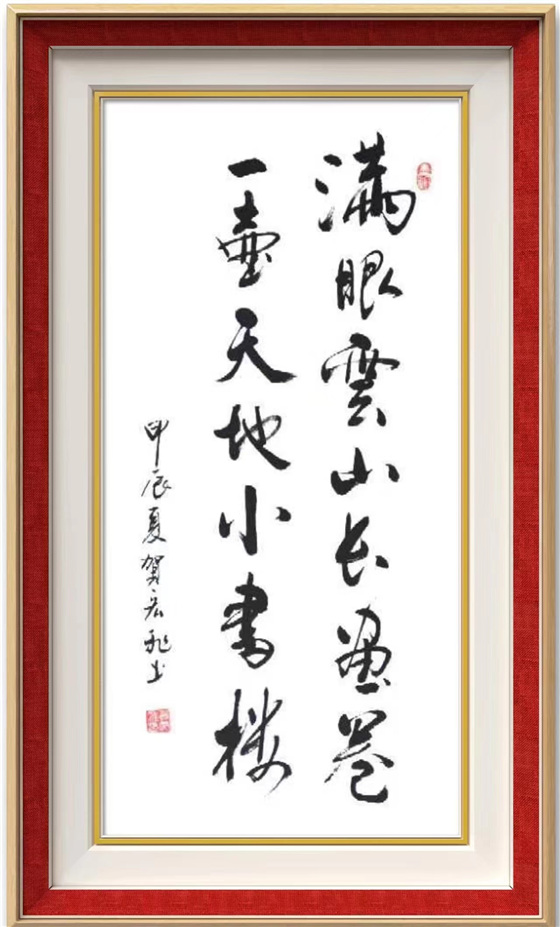 满眼雲山长画卷
一壶天地小书楼
甲辰夏贺宏